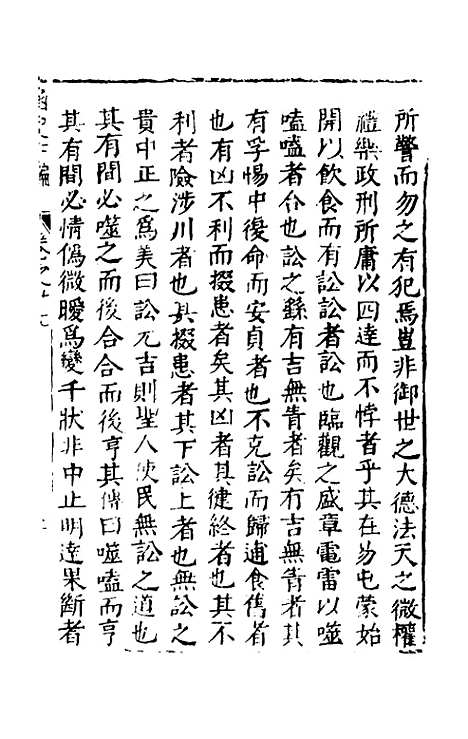 所警而勿之有犯焉豈非御世之大德法天之微權
禮樂政刑所庸以四達而不悖者乎其在易屯蒙始
開以飲食而有訟訟者訟也臨觀之盛章電雷以噬
嗑嗑者合也訟之繇有吉無眚者矣有吉無眚者其
有孚惕中復命而安貞者也不克訟而歸逋食舊者
也有凶不利而掇患者矣其凶者其健終者也其不
利者險涉川者也其掇患者其下訟上者也無訟之
貴中正之爲美曰訟元吉則聖人使民無訟之道也
其有間必噬之而後合合而後亨其傳曰噬嗑而亨
其有間必情僞微曖爲變千狀非中正明達果斷者
函史下編
卷之十